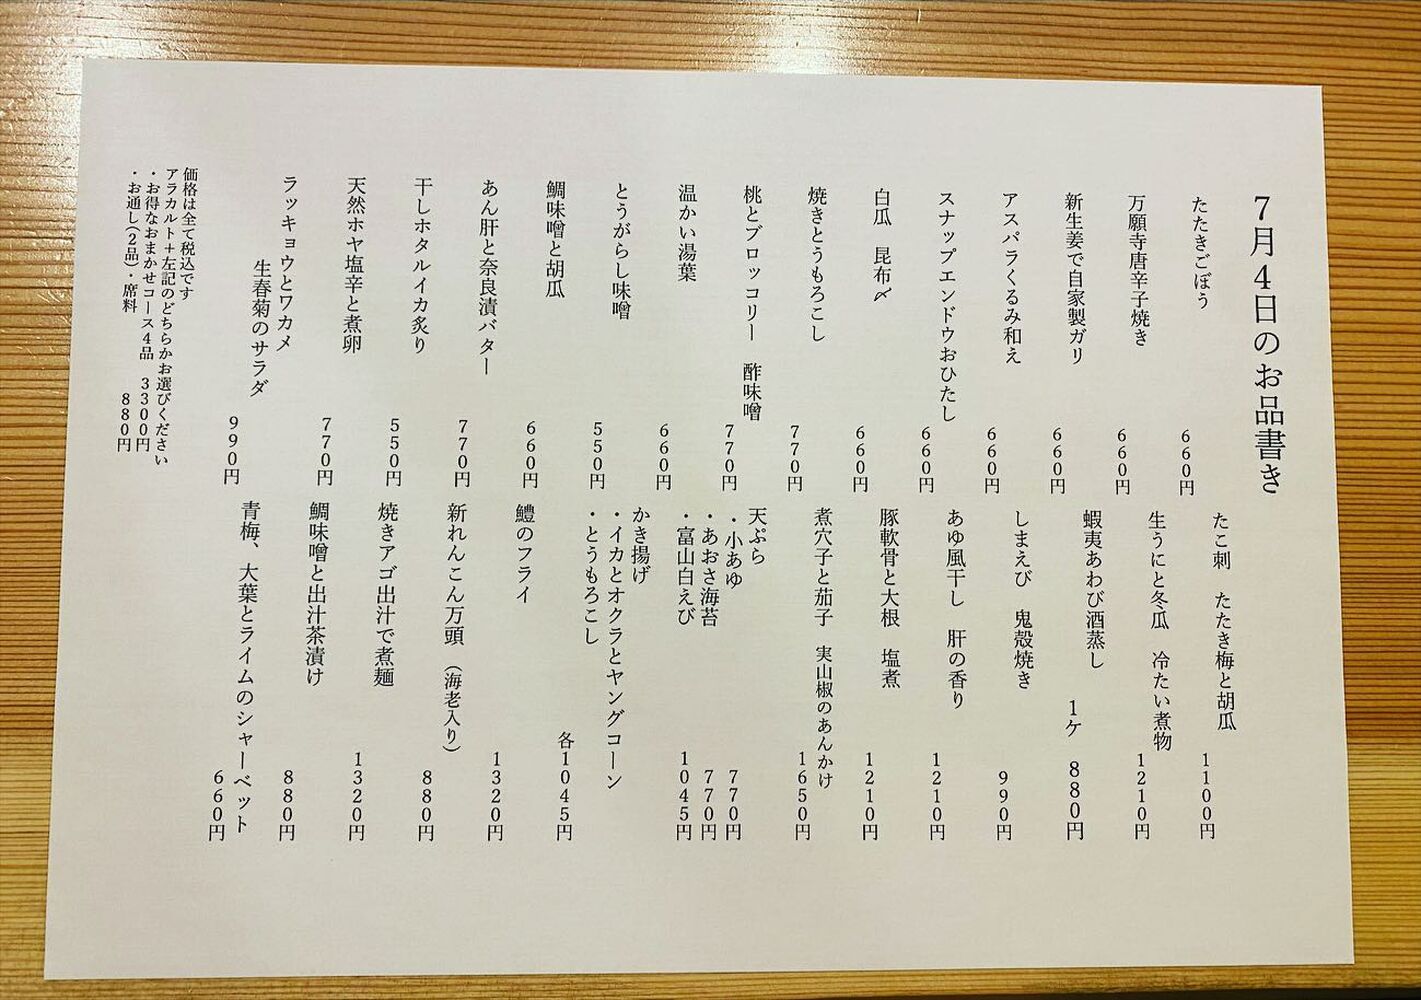 7月4日のお品書き
たたきごぼう 660円
万願寺唐辛子焼き 660円
新生姜で自家製ガリ 660円
アスパラくるみ和え 660円
スナップエンドウおひたし 660円
白瓜 昆布〆 660円
焼きとうもろこし 770円
桃とブロッコリー 酢味噌 770円
温かい湯葉 660円
とうがらし味噌 550円
鯛味噌と胡瓜 660円
あん肝と奈良漬バター 770円
干しホタルイカ炙り 550円
天然ホヤ塩辛と煮卵 770円
ラッキョウとワカメ
生春菊のサラダ 990円
たこ刺 たたき梅と胡瓜 1100円
生うにと冬瓜 冷たい煮物 1210円
蝦夷あわび酒蒸し 1ケ 880円
しまえび 鬼殻焼き 990円
あゆ風干し 肝の香り 1210円
豚軟骨と大根 塩煮 1210円
煮穴子と茄子 実山椒のあんかけ 1650円
天ぷら
・小あゆ 770円
・あおさ海苔 770円
・富山白えび 1045円
かき揚げ
・イカとオクラとヤングコーン
・とうもろこし 各1045円
鱧のフライ 1320円
新れんこん万頭 (海老入り) 880円
焼きアゴ出汁で煮麺 1320円
鯛味噌と出汁茶漬け 880円
青梅、大葉とライムのシャーベット 660円
価格は全て税込です
アラカルト+左記のどちらかお選びください
・お得なおまかせコース4品 3300円
・お通し(2品)・席料 880円